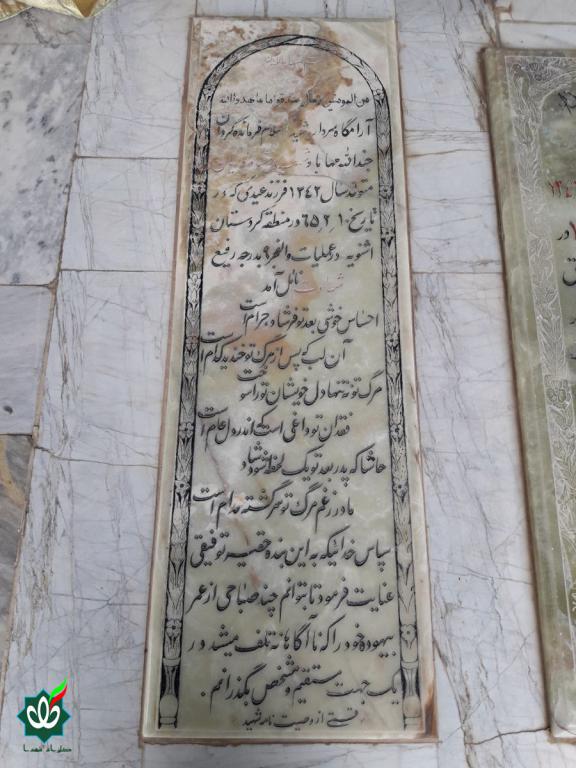 من المومنین رجال صدقوا ما عاهدوا الله
آرامگاه سردار شهید اسلام فرمانده گردان
جندالله مهاباد
متولد سال ۱۳۴۲ فرزند عیدی که در
تاریخ ۶۵٫۲٫۱۰ در منطقه کردستان
اشنویه در عملیات والفجر۹ بدرجه رفیع
شهادت نائل آمد
احساس خوشی بعد تو فرشاد حرام است
آن لب که پس از مرگ تو خندید کدام است
مرگ تو نه تنها دل خویشان تو را سوخت
فقدان تو داغی است که اندر دل عام است
حاشا که پدر بعد تو یک لحظه شود شاد
مادر ز غم مرگ تو سرگشته مدام است
سپاس خدائیکه به این بنده حقیر توفیقی
عنایت فرمود تا بتوانم چند صباحی از عمر
بیهوده خود را که ناآگاهانه تلف میشد در
یک جهت مستقیم و مشخص بگذرانم.
قسمتی از وصیت نامه شهید